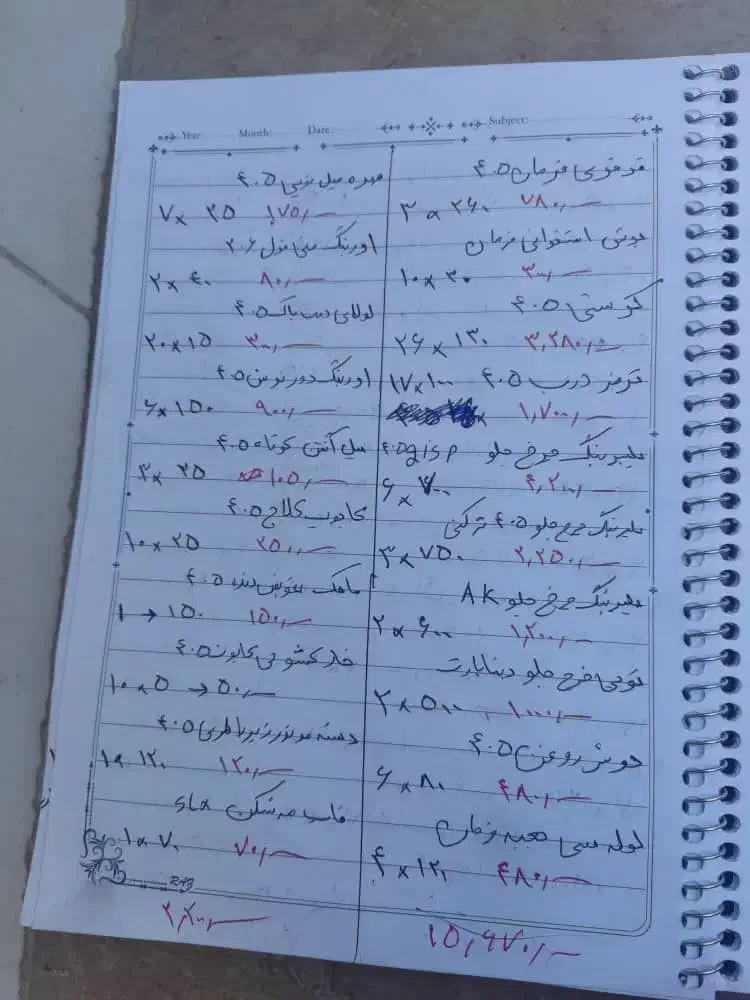 Year: Month: Date: Subject:
قرقری فرمان ۴۰۵
۳ × ۲۶۰ ۷۸۰٫—
دوش استخوانی فرمان
۱۰ × ۳۰ ۳۰۰٫—
۴۰۵
۲۶ × ۱۳۰ ۳٫۲۸۰٫—
ترمز درب ۴۰۵ ۱۷ × ۱۰۰
۱٫۷۰۰٫—
بلبرینگ چرخ جلو ۴۰۵
۶ × ۷۰۰ ۴٫۲۰۰٫—
بلبرینگ چرخ جلو ۴۰۵ ترکی
۳ × ۷۵۰ ۲٫۲۵۰٫—
بلبرینگ چرخ جلو AK
۲ × ۶۰۰ ۱٫۲۰۰٫—
توپی چرخ جلو دیناپارت
۲ × ۵۰۰ ۱۰۰۰٫—
روغن ۴۰۵
۶ × ۸۰ ۴۸۰٫—
لوله مسی جعبه فرمان
۴ × ۱۲۰ ۴۸۰٫—
۱۵٫۹۷۰٫—
مهره میل ۴۰۵
۷ × ۲۵ ۱۷۵٫—
اورینگ ۲۰۶
۲ × ۴۰ ۸۰٫—
لولای درب باک ۴۰۵
۲۰ × ۱۵ ۳۰۰٫—
اورینگ دور بوش ۴۰۵
۶ × ۱۵۰ ۹۰۰٫—
میل آنتن کوتاه ۴۰۵
۳ × ۳۵ ۱۰۵٫—
کلاچ ۴۰۵
۱۰ × ۲۵ ۲۵۰٫—
ماهک تعویض دنده ۴۰۵
۱ → ۱۵۰ ۱۵۰٫—
خار کشویی ۴۰۵
۱۰ × ۵ → ۵۰٫—
دسته موتور زیر باطری ۴۰۵
۱ × ۱۲۰ ۱۲۰٫—
قاب مه شکن slx
۱ × ۷۰ ۷۰٫—
۲٫۲۰۰٫—